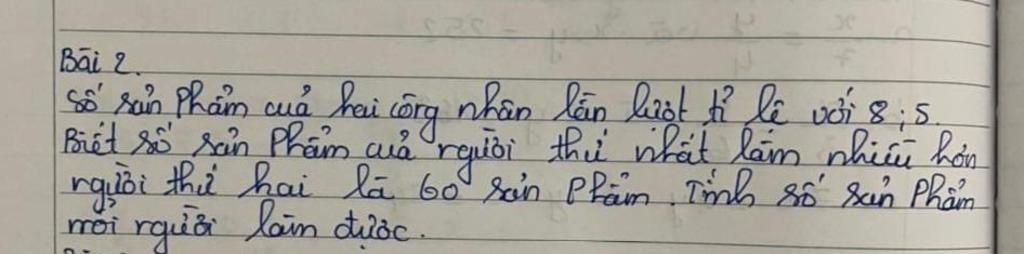 Bài 2.
Số sản phẩm của hai công nhân lần lượt tỉ lệ với 8 ; 5.
Biết số sản phẩm của người thứ nhất làm nhiều hơn
người thứ hai là 60 sản phẩm. Tính số sản phẩm
mỗi người làm được.